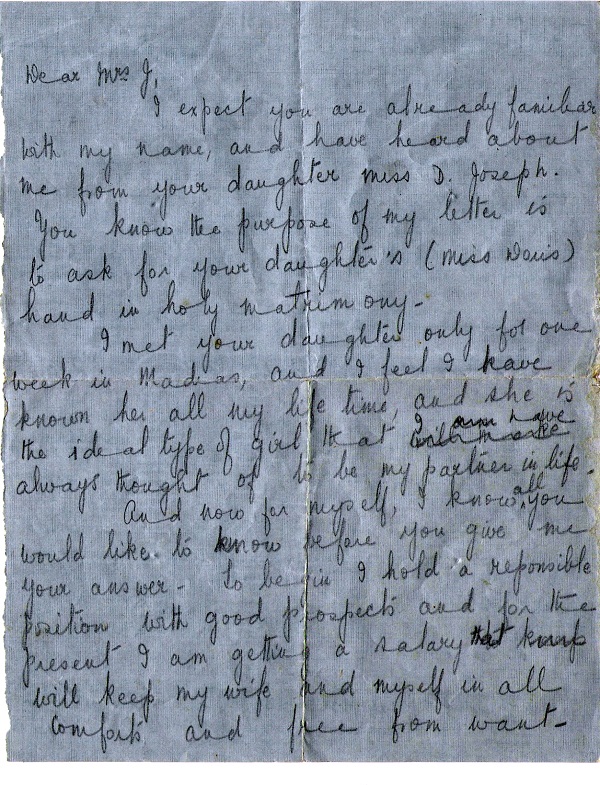 Dear Mrs J,
I expect you are already familiar
with my name, and have heard about
me from your daughter miss D. Joseph.
You know the purpose of my letter is
to ask for your daughter's (miss Doris)
hand in holy matrimony-
I met your daughter only for one
week in Madras, and I feel I have
known her all my life time, and she is
the ideal type of girl that I have
always thought of to be my partner in life.
And now for myself, I know all you
would like to know before you give me
your answer- To begin I hold a reponsible
position with good prospects and for the
present I am getting a salary that
will keep my wife and myself in all
comforts and free from want-